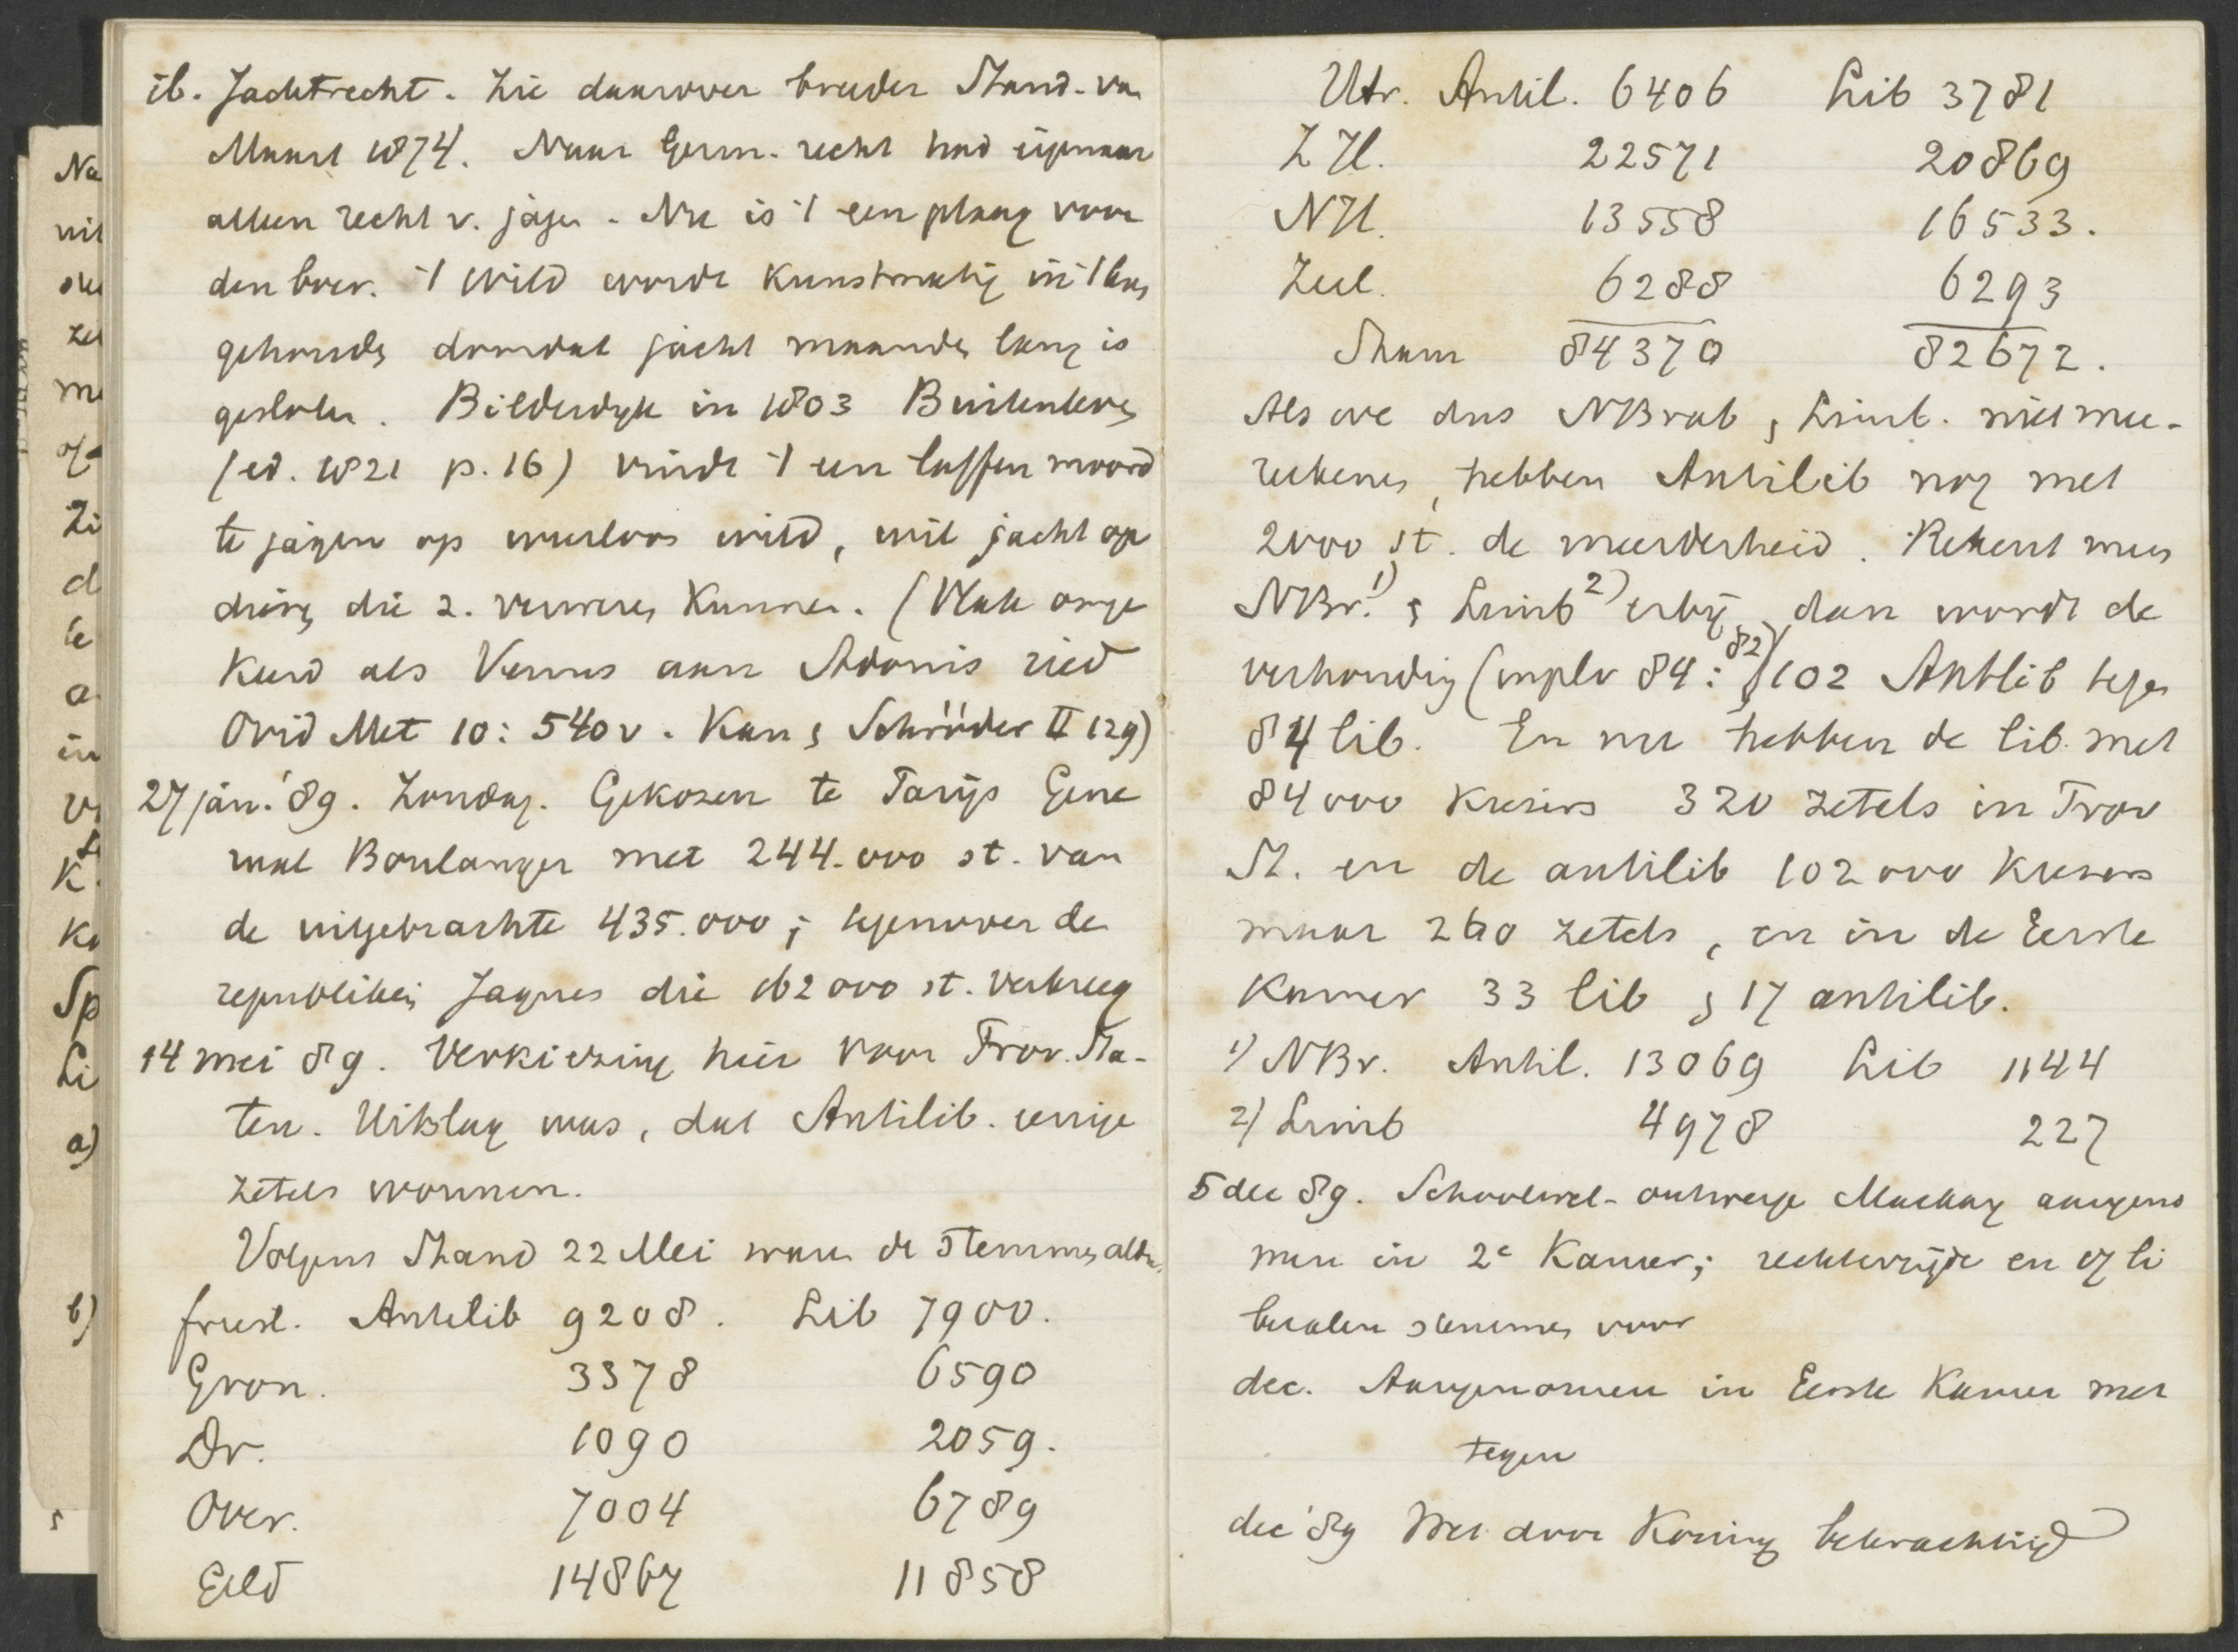 ib. Jachtrecht. Zie daarover breeder Stand. van
Maart 1874. Naar Germ. recht had eigenaar
alleen recht v. jagen. Nu is 't een plaag voor
den boer. 't Wild wordt kunstmatig in 't leven
gehouden doordat jacht maanden lang is
gesloten. Bilderdyk in 1803 Buitenleven
(ed. 1821 p. 16) vindt 't een laffen moord
te jagen op weerloos wild, wil jacht op
dieren die z. verweren kunnen. (Vlak omge
keerd als Venus aan Adonis ried
Ovid Met 10: 540v. Kan & Schröder II 129)
27 jan. '89. Zondag. Gekozen te Parijs Gene
raal Boulanger met 244.000 st. van
de uitgebrachte 435.000; tegenover de
republikein Jaques die 162000 st. verkreeg
14 mei 89. Verkiezing hier voor Prov. Sta-
ten. Uitslag was, dat Antilib. eenige
zetels wonnen.
Volgens Stand 22 Mei waren de stemmen aldus
friesl. Antilib 9208. Lib 7900.
Gron. 3378 6590
Dr. 1090 2059.
Over. 7004 6789
Geld 14867 11858
Utr. Antil. 6406 Lib 3781
ZHl. 22571 20869
NHl. 13558 16533.
Zeel. 6288 6293
Samen 84370 82672.
Als we dus NBrab & Limb. niet mee-
rekenen, hebben Antilib nog met
2000 st. de meerderheid. Rekent men
NBr.1) & Limb2) erbij, dan wordt de
verhouding (inplv 84:82) 102 Antlib tegen
84 lib. En nu hebben de lib. met
84000 kiezers 320 zetels in Prov
St. en de antilib 102000 kiezers
maar 260 zetels, en in de Eerste
Kamer 33 lib & 17 antilib.
1) NBr. Antil. 13069 Lib 1144
2) Limb 4978 227
5 dec 89. Schoolwet-ontwerp Mackay aangeno
men in 2e Kamer; rechterzijde en 7 li
beralen stemmen voor
dec. Aangenomen in Eerste Kamer met
tegen
dec '89 Wet door Koning bekrachtigd